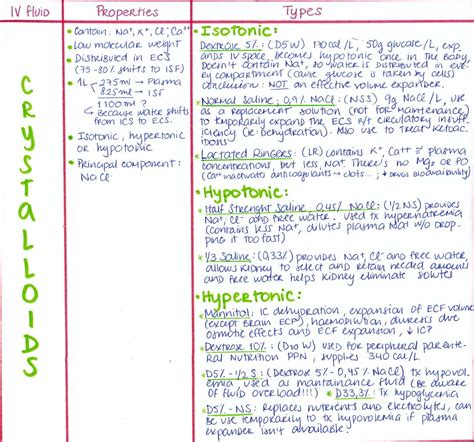 IV Fluid
Properties
Types
CRYSTALLOIDS
• Contain: Na⁺, K⁺, Cl⁻, Ca⁺⁺
• Low molecular weight
• Distributed in ECS
(75-80% shifts to ISF)
• 1L 275ml → Plasma
825ml → ISF
1100ml?
↳ Because water shifts
from ICS to ECS.
• Isotonic, hypertonic
or hypotonic
• Principal component:
NaCl
• Isotonic:
Dextrose 5%: (D5W) 170cal/L, 50g glucose/L, exp
ands IV space, becomes hypotonic once in the body,
Doesn't contain Na⁺, so water is distributed in eve
ry compartment (cause glucose is taken by cells)
conclusion: NOT an effective volume expander.
• Normal Saline, 0,9% NaCl: (NSS) 9g NaCl/L, use
as a replacement solution (not for maintenance)
to temporarily expand the ECS n/t circulatory insuff
iciency (ie: dehydration). Also use to treat ketoac
idosis
• Lactated Ringers: (LR) contains K⁺, Ca⁺⁺ = plasma
concentrations, but less Na⁺. There's no Mg, or PO
(Ca⁺⁺inactivats anticoagulants → clots... ↓drugs bioavailability)
• Hypotonic:
• Half Strenght Saline, 0,45% NaCl: (1/2 NS) provides
Na⁺, Cl⁻ and free water. used tx hypernatremia
(contains less Na⁺, dilutes plasma Na⁺ w/o drop
ping it too fast)
• 1/3 Saline: (0,33%) provides Na⁺, Cl⁻ and free water,
allows Kidney to select and retain needed amounts
and free water helps Kidney eliminate solutes
• Hypertonic:
• Mannitol: IC dehydration, expansion of ECF volume
(except Brain ECF), haemodilution, diuresis due
osmotic effects and ECF expansion, ↓ICP
• Dextrose 10%: (D10W) used for peripheral parente
ral Nutrition PPN, supplies 340 cal/L.
• D5%-1/2 S: (Dextrose 5% - 0,45% NaCl) tx hypovol
emia, used as maintainance fluid (Be aware
of fluid overload!!!) • D33,3%: Tx hypoglycemia
• D5%-NS: Replaces nutrients and electrolytes, can
be use temporarily to tx hypovolemia if plasma
expander isn't available!